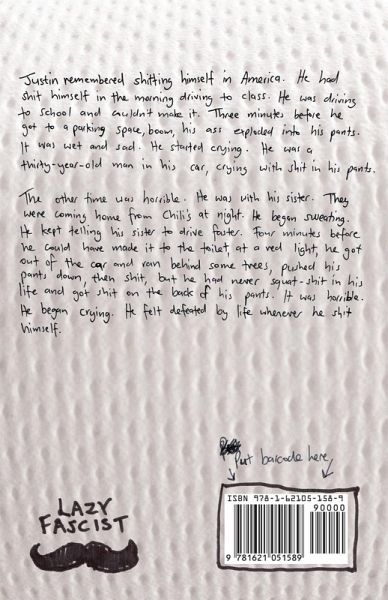 Justin remembered shitting himself in America. He had
shit himself in the morning driving to class. He was driving
to school and couldn't make it. Three minutes before he
got to a parking space, boom, his ass exploded into his pants.
It was wet and sad. He started crying. He was a
thirty-year-old man in his car, crying with shit in his pants.
The other time was horrible. He was with his sister. They
were coming home from Chili's at night. He began sweating.
He kept telling his sister to drive faster. Four minutes before
he could have made it to the toilet at a red light, he got
out of the car and ran behind some trees, pushed his
pants down, then shit, but he had never squat-shit in his
life and got shit on the back of his pants. It was horrible.
He began crying. He felt defeated by life whenever he shit
himself.
Put barcode here
LAZY
FASCIST
ISBN 978-1-62105-158-9
90000
9 781621 051589